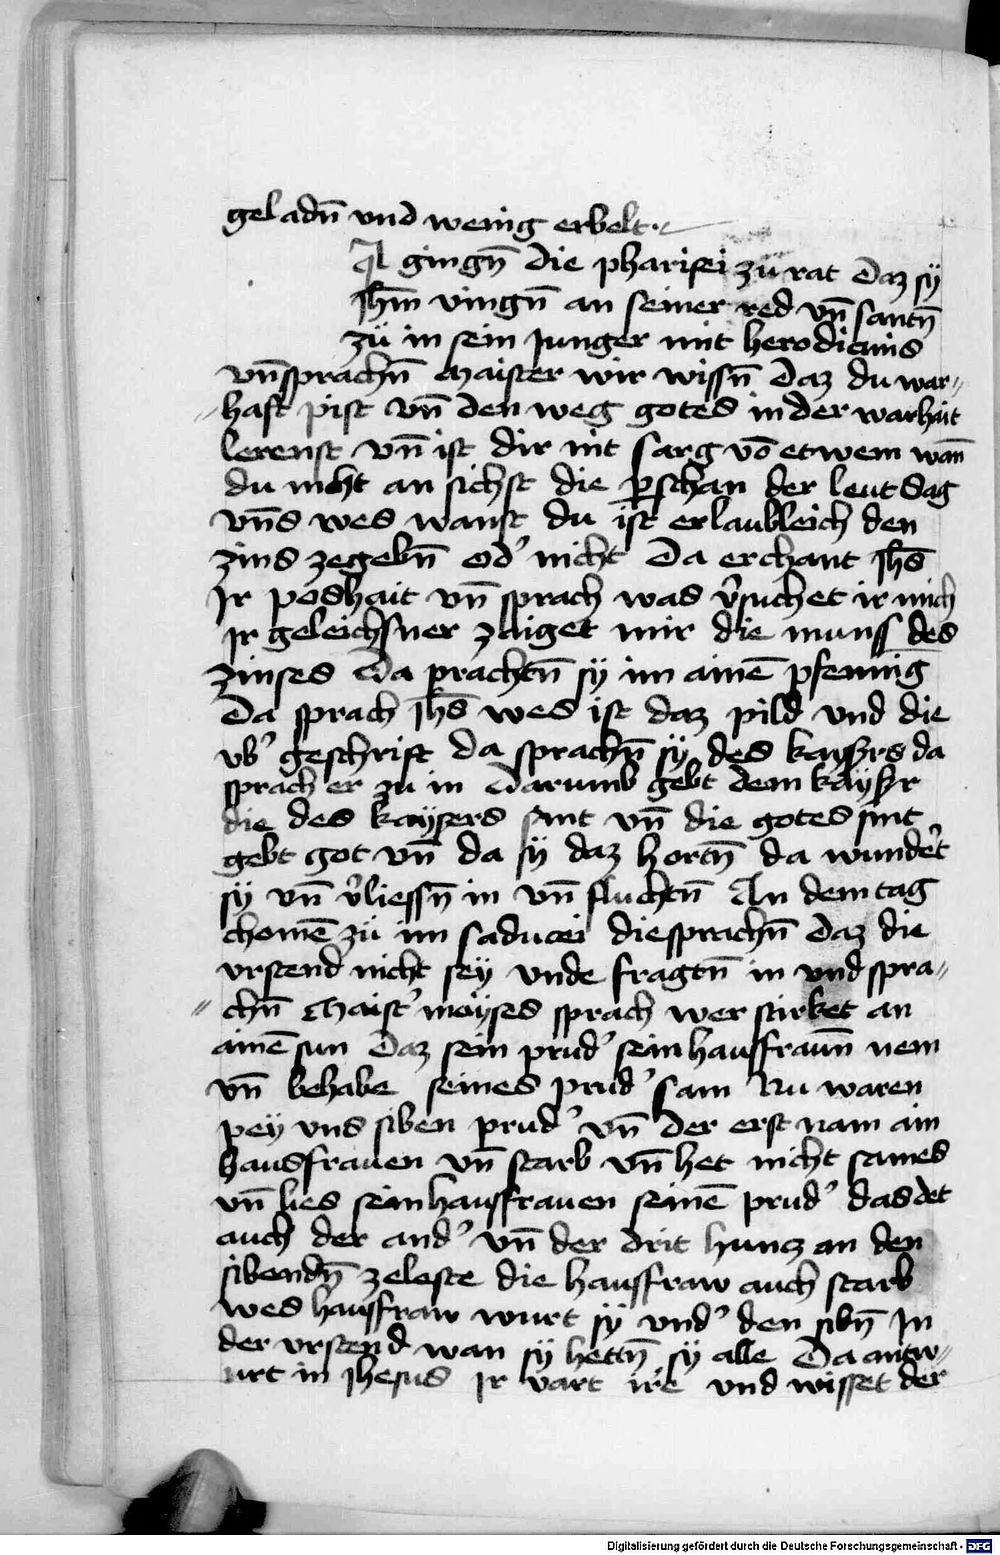 geladn̄ vnd wenig erbelt.
A gingn̄ die pharisei zü rat daz sy
Jhm̄ vingn̄ an seiner red vn̄ santn̄
zü in sein Junger mit herodianis
vn̄ sprachn̄ Maister wir wissn̄ daz du war„
„haft pist vn̄ den weg gotes in der warhait
lerenst vn̄ ist dir nit sarg vō etwem wan̄
du nicht an sichst die ꝑschan der leut Sag
vns wes wanst du ist erlaubleich den
zins zegebn̄ od' nicht Da erchant Jhs̄
Jr poshait vn̄ sprach was v'suchet ir mich
Jr geleichsner zaiget mir die munss des
zinses Da prachtn̄ sy im ainē pfennig
Da sprach Jhs̄ wes ist daz pild vnd die
vb' geschrift da sprachn̄ sy des kaysers da
sprach er zu in Darumb gebt dem kayser
die des kaysers sint vn̄ die gotes sint
gebt got vn̄ da sy daz hortn̄ da wunde't
sy vn̄ v'liessn̄ in vn̄ fluchtn̄ An dem tag
chomē zü im saducei die sprachn̄ daz die
vrstend nicht sey vnde fragtn̄ in vnd spra„
„chn̄ Maist' möyses sprach wer stirbet an
ainē sun Daz sein prud' sein hausfraun̄ nem
vn̄ behabe seines prud' sam Nu waren
pey vns siben prud' vn̄ der erst nam ain
hausfrauen vn̄ starb vn̄ het nicht sames
vn̄ lies sein hausfrauen seinē prud' das det
auch der and' vn̄ der drit huncz an den
sibendn̄ zeleste die hausfraw auch starb
wes hausfraw wurt sy vnd' den sibn̄ In
der vrstend wan sy hettn̄ sy alle Da antw„
urt in Jhesus Jr vart ire vnd wisset der
Digitalisierung gefördert durch die Deutsche Forschungsgemeinschaft - DFG